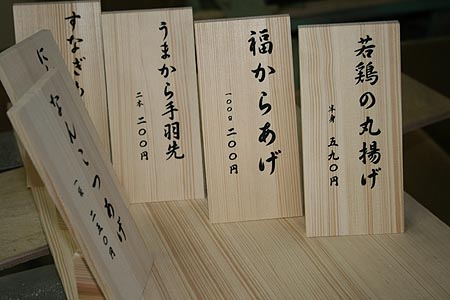 若鶏の丸揚げ
半身 五九〇円
福からあげ
一〇〇g 二〇〇円
うまから手羽先
二本 二〇〇円
すなぎ
なんこつあげ
二五〇円